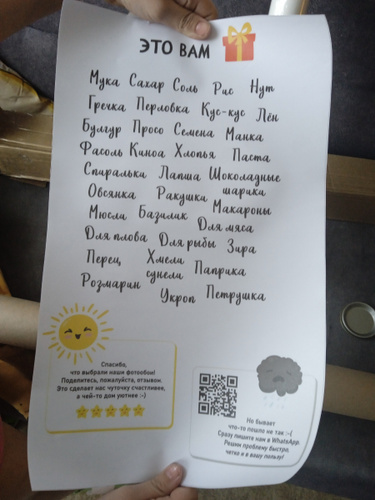 ЭТО ВАМ
Мука Сахар Соль Рис Нут
Гречка Перловка Кус-кус Лён
Булгур Просо Семена Манка
Фасоль Киноа Хлопья Паста
Спиральки Лапша Шоколадные
шарики
Овсянка Ракушки Макароны
Мюсли Базилик Для мяса
Для плова Для рыбы Зира
Перец Хмели
сунели Паприка
Розмарин Укроп Петрушка
Спасибо,
что выбрали наши фотообои!
Поделитесь, пожалуйста, отзывом.
Это сделает нас чуточку счастливее,
а чей-то дом уютнее :-)
Не бывает
что-то пошло не так :-(
Сразу пишите нам в WhatsApp.
Решим проблему быстро,
четко и в вашу пользу!